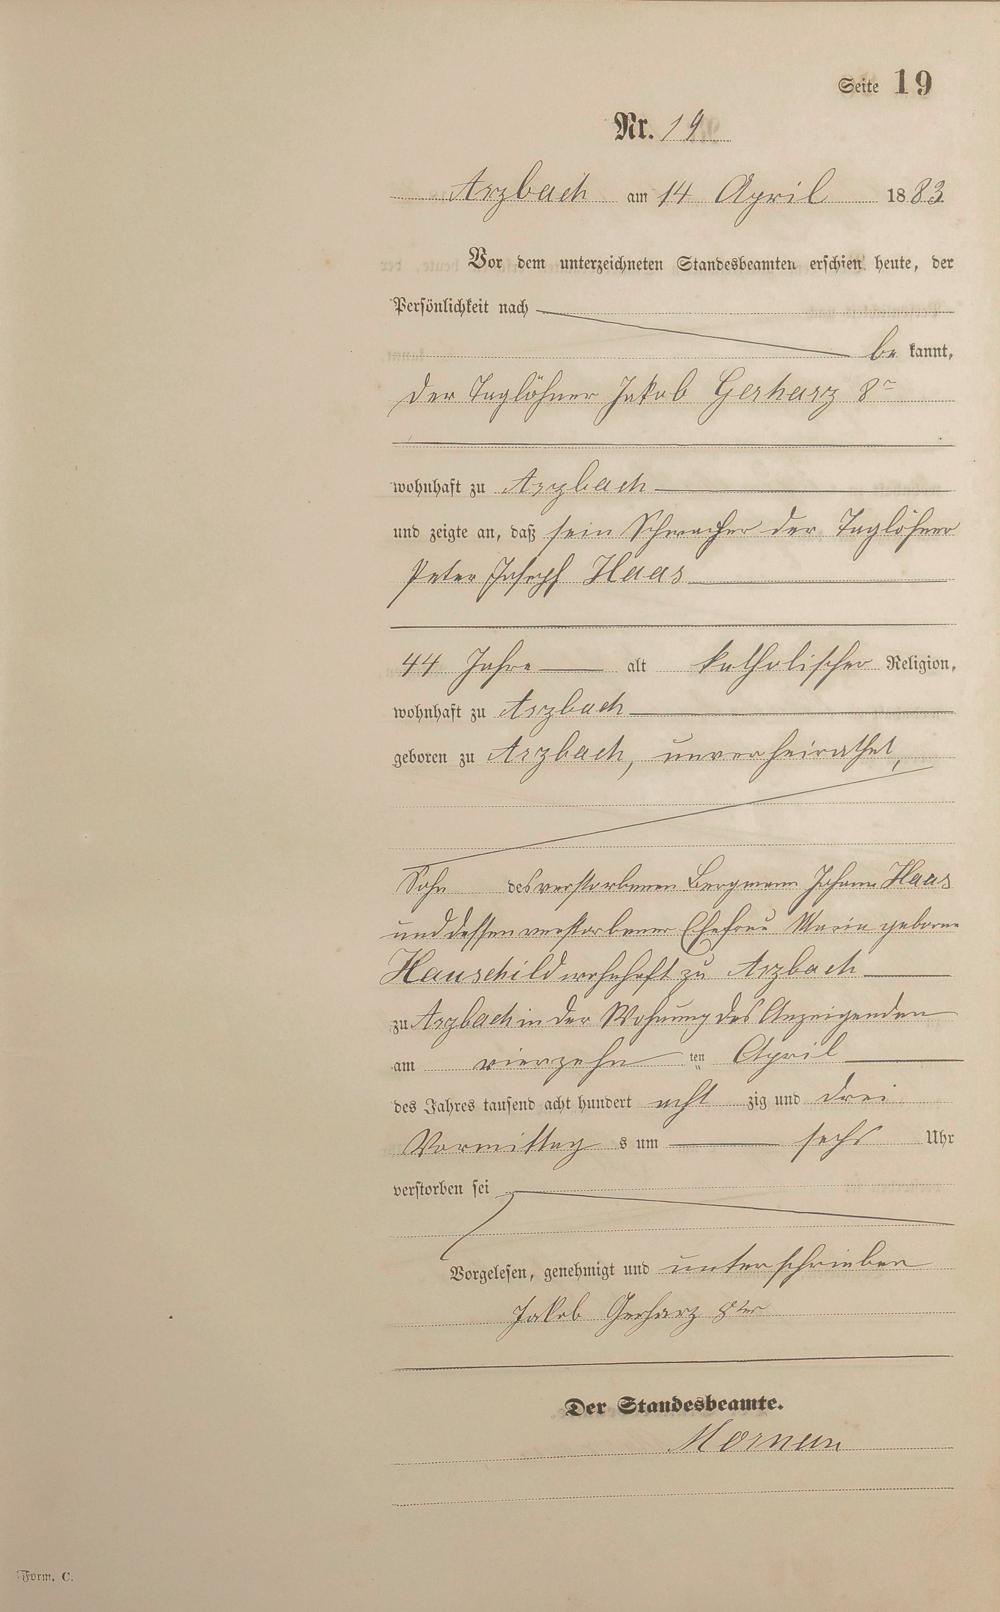 Seite 19
Nr. 19
Arzbach am 14 April 1883
Vor dem unterzeichneten Standesbeamten erschien heute, der
Persönlichkeit nach
be kannt,
der Taglöhner Jakob Gerharz 8r
wohnhaft zu Arzbach
und zeigte an, daß sein Schwager der Taglöhner
Peter Joseph Haas
44 Jahre alt katholischer Religion,
wohnhaft zu Arzbach
geboren zu Arzbach, unverheirathet,
Sohn des verstorbenen Bergmann Johann Haas
und dessen verstorbener Ehefrau Maria geborne
Hauschild wohnhaft zu Arzbach
zu Arzbach in der Wohnung des Anzeigenden
am vierzehn ten April
des Jahres tausend acht hundert acht zig und drei
Vormittag s um sechs Uhr
verstorben sei
Vorgelesen, genehmigt und unterschrieben
Jakob Gerharz 8ter
Der Standesbeamte.
Form. C.